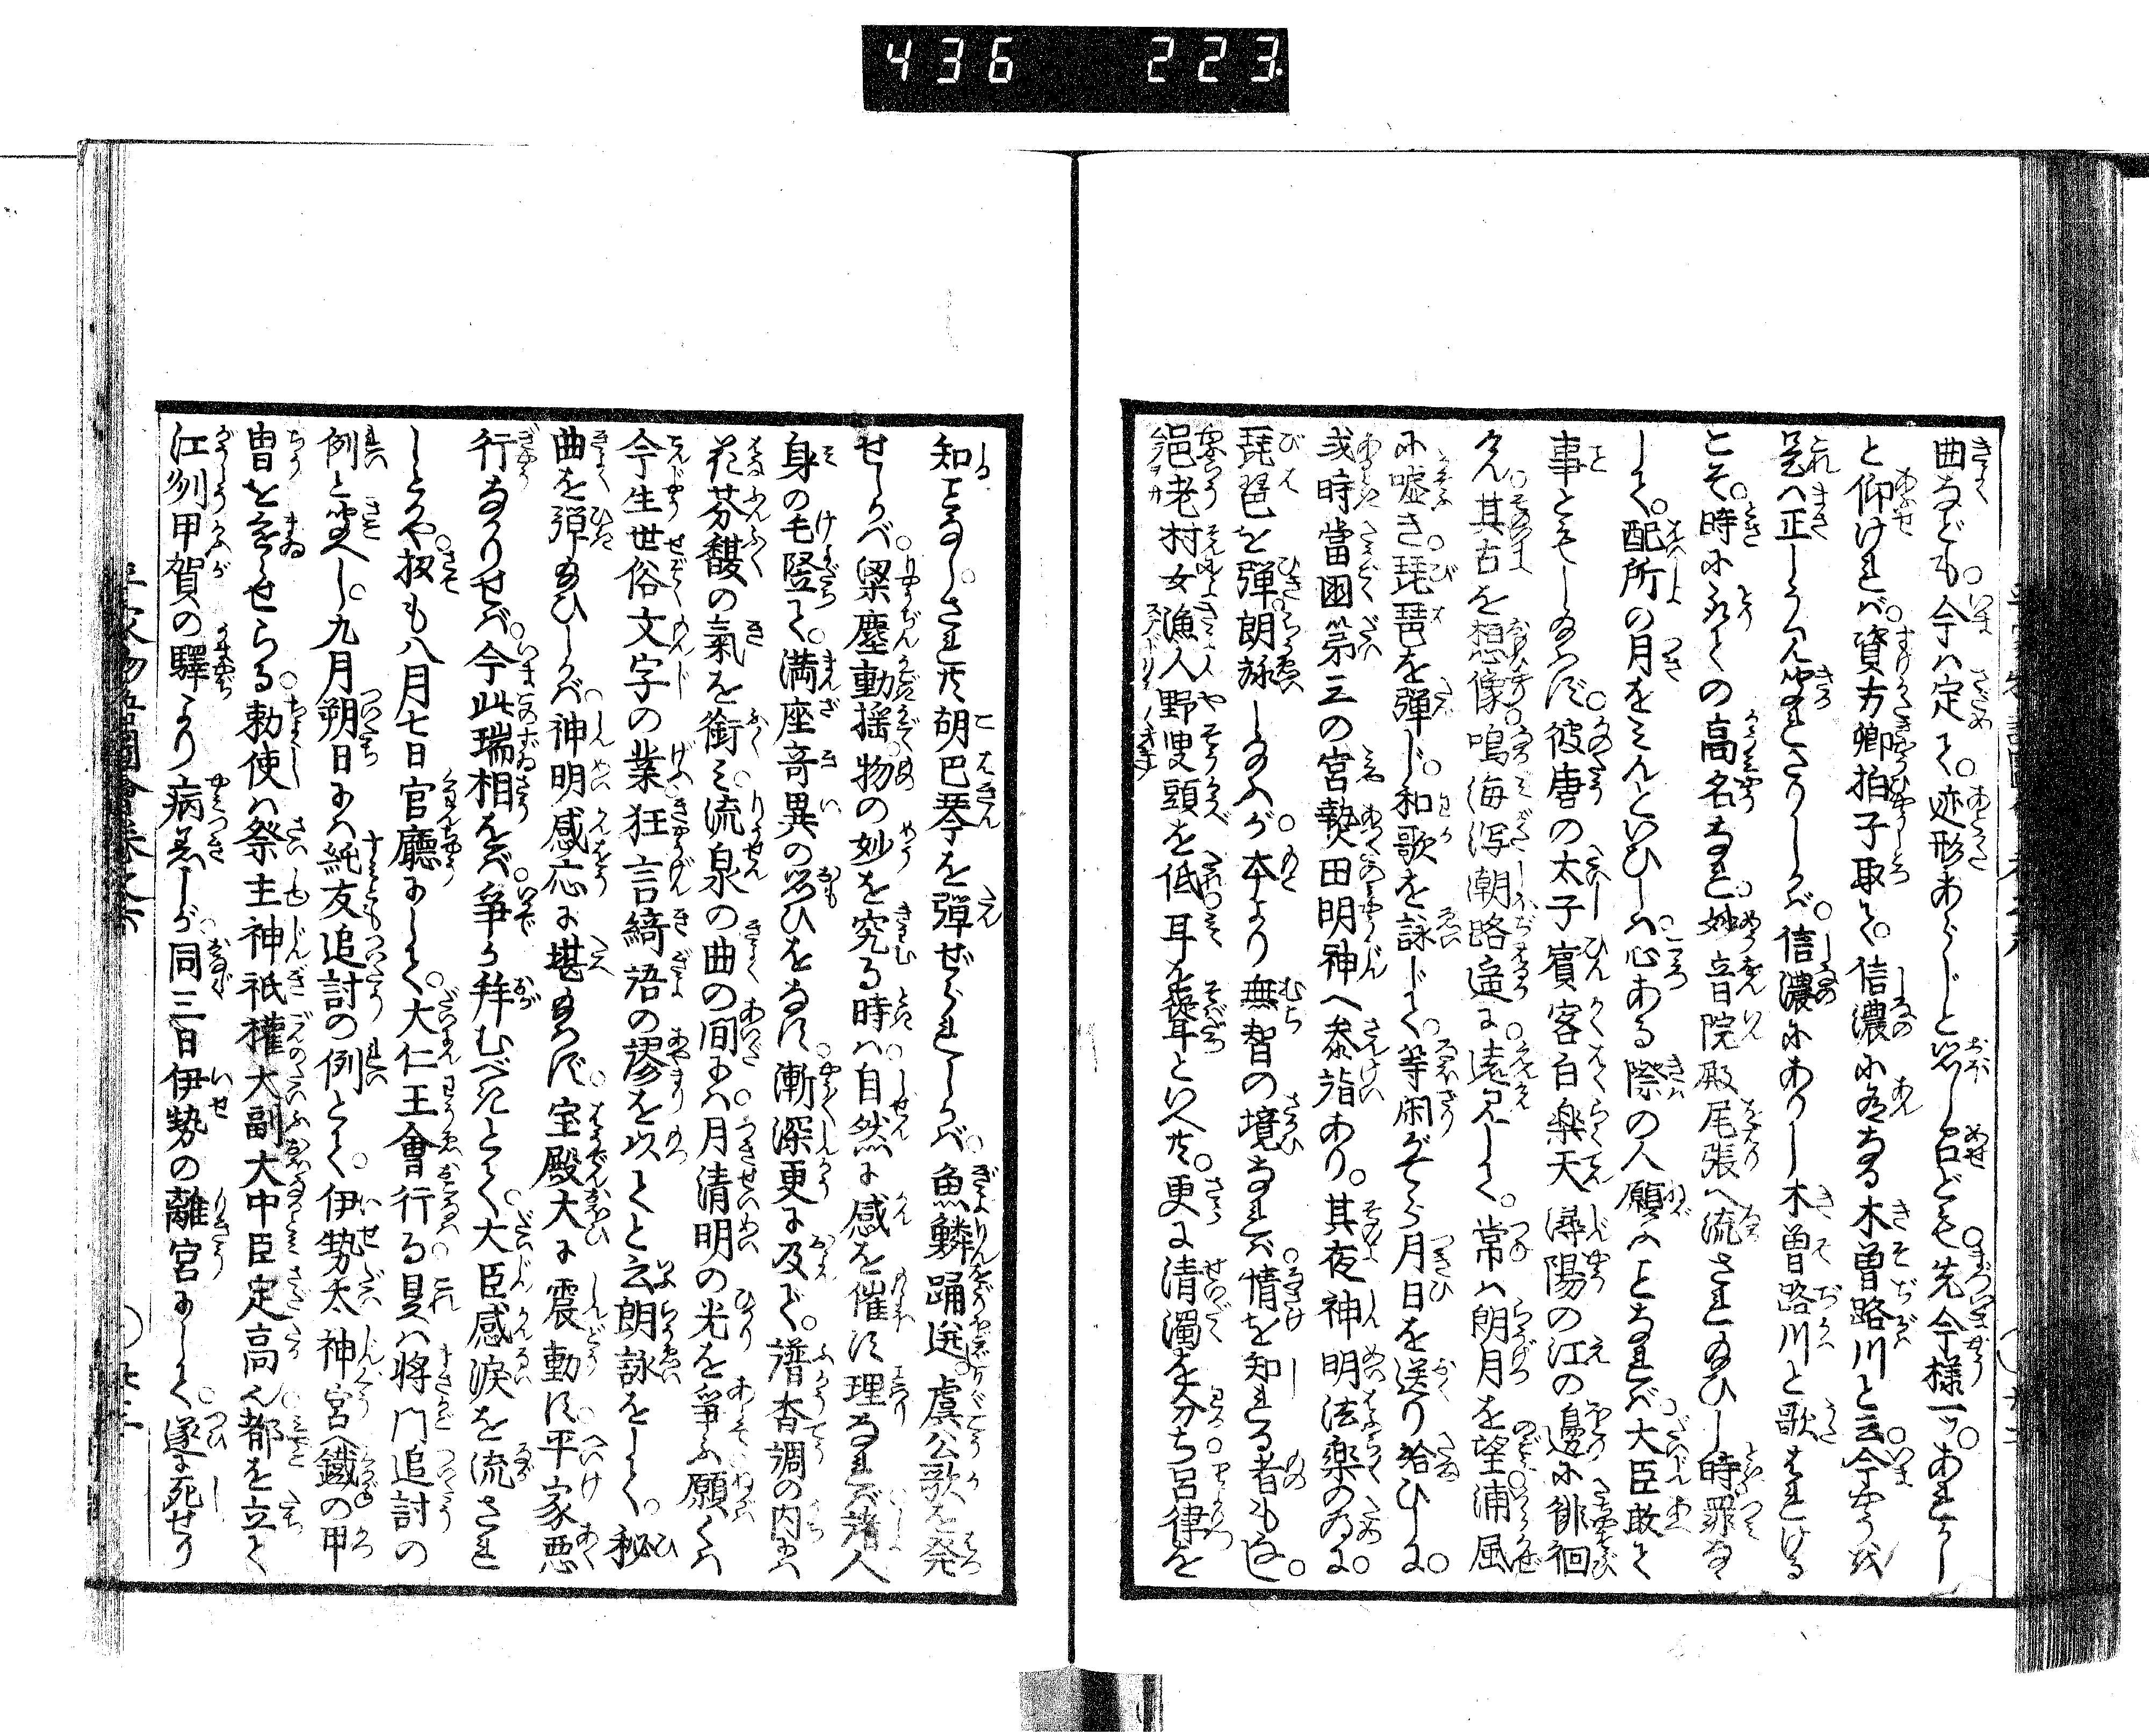 436 223.
曲なども。今は定て。迹形あらじと思し召ども。先今様一ツ。あれかし
と仰けれバ。資方卿拍子取て。信濃に有なる木曽路川と云今やうを
是ハ正しう見聞れさりしかバ。信濃にありし木曽路川と歌はれける
こそ。時に取ての高名なれ。妙音院殿尾張へ流され給ひし時罪な
しく。配所の月をミんといひしハ。心ある際の人願ふことなれバ。大臣敢て
事ともし給はず。彼唐の太子賓客白楽天。潯陽の江の邊に徘徊
けん。其古を想像。鳴海泻潮路遥に。遠見しく。常ハ朗月を望。浦風
に嘘き。琵琶を弾じ。和歌を詠じて。等閑がてら月日を送り給ひしに。
或時當国第三の宮熱田明神へ参詣あり。其夜神明法楽の為に。
琵琶を弾。朗詠し給ふが。本より無智の境なれバ。情を知れる者もなし。
邑老村女漁人野叟。頭を低耳を聳といへ共。更に清濁を分ち呂律を
知ことなし。され共胡巴琴を弾ぜられしかバ。魚鱗踊迸。虞公歌を発
せしかバ。梁塵動揺。物の妙を究る時ハ。自然に感を催す理なれバ。諸人
身の毛竪て。満座奇異の思ひをなす。漸深更に及で。譜香調の内にハ
花芬馥の氣を銜ミ。流泉の曲の間にハ。月清明の光を爭ふ。願くハ
今生世俗文字の業。狂言綺語の謬を以てと云朗詠をして。秘
曲を弾給ひしかバ。神明感応に堪給はず。宝殿大に震動す。平家悪
行なかりせバ。今此瑞相をバ。爭か拝むべきとて。大臣感涙を流され
しとかや。扨も八月七日官廳にして。大仁王會行る。是ハ将門追討の
例と聞へし。九月朔日にハ純友追討の例とて。伊勢太神宮へ鐵の甲
胄をまゐらせらる。勅使ハ祭主神祇權大副大中臣定高。都を立て
江州甲賀の驛より病着しが。同三日伊勢の離宮にして。遂に死せり